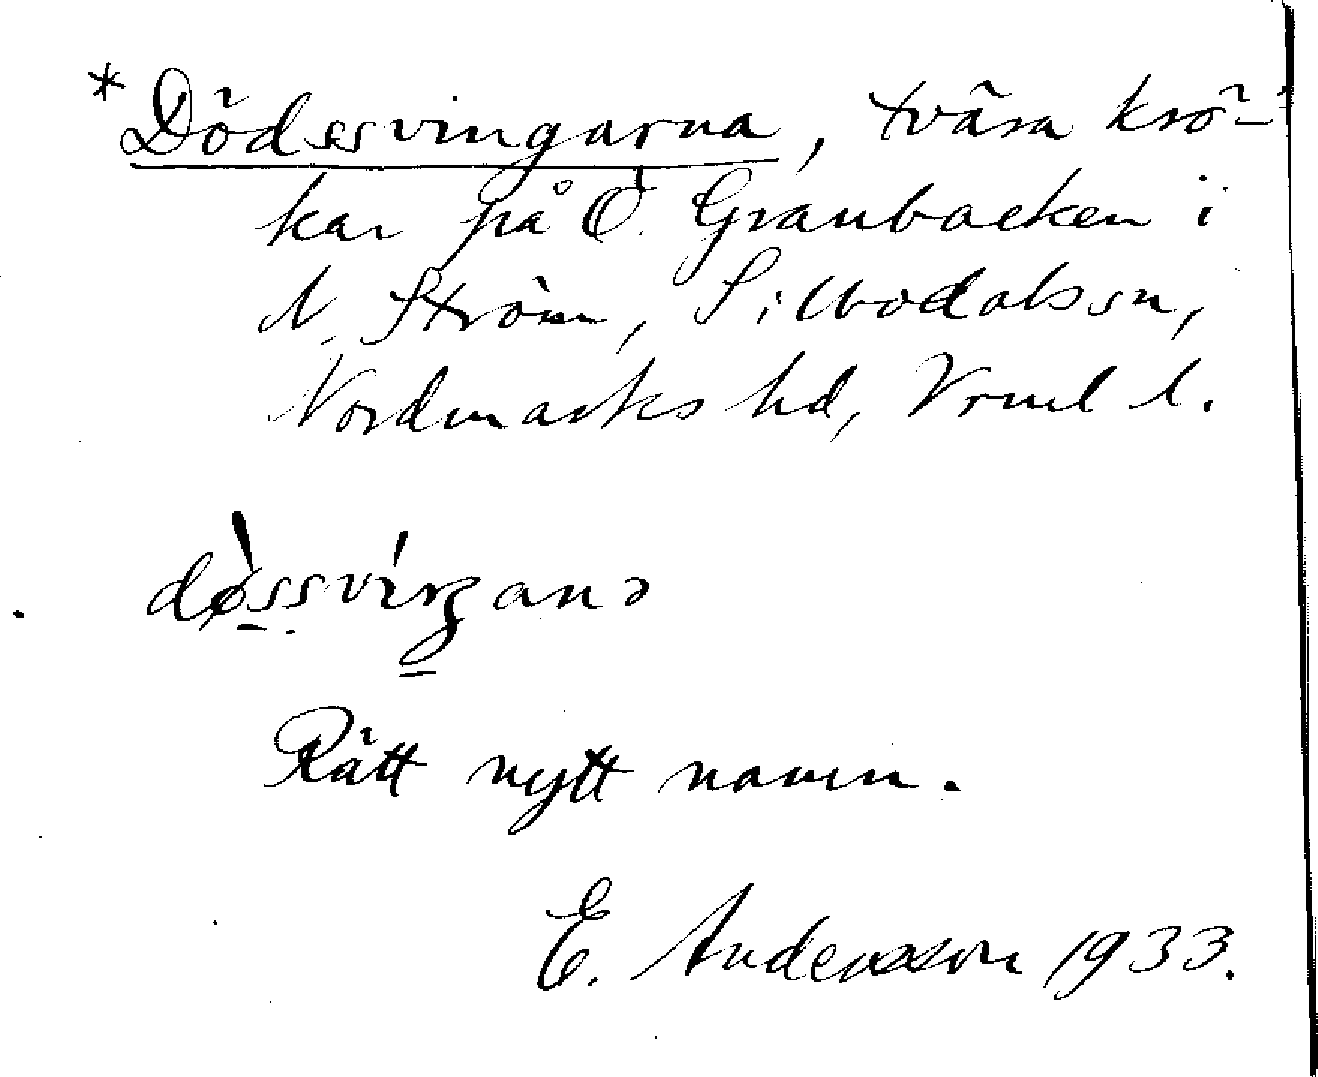 *Dödssvingarna, tvära krö-
kar på Ö. Granbacken i
N. Ström, Silbodals sn,
Nordmarks hd, Vrml l.
Rätt nytt namn.
E. Andersson 1933.